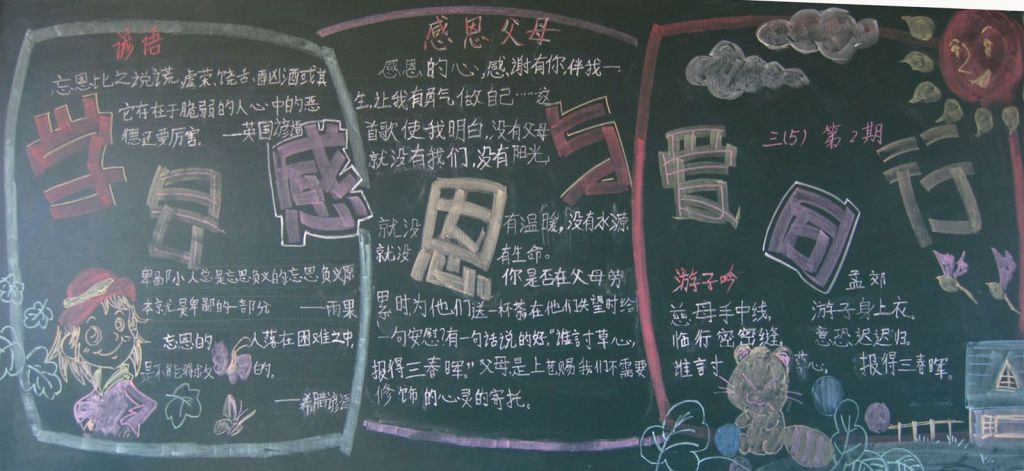 学会感恩与爱同行
谚语
忘恩比之说谎、虚荣、饶舌、酗酒或其
它存在于脆弱的人心中的恶
德还要厉害。 —英国谚语
卑鄙小人总是忘恩负义的忘恩负义原
本就是卑鄙的一部分 ——雨果
忘恩的 人落在困难之中,
是不能得救 的。
——希腊谚语
感恩父母
感恩的心,感谢有你伴我一
生,让我有勇气做自己……这
首歌使我明白,没有父母
就没有我们,没有阳光,
就没 有温暖,没有水源
就没 有生命。
你是否在父母劳
累时为他们送一杯茶在他们失望时给
一句安慰?有一句话说的好“谁言寸草心,
报得三春晖。”父母是上苍赐我们不需要
修饰的心灵的寄托。
三(5) 第2期
游子吟 孟郊
慈母手中线, 游子身上衣。
临行密密缝, 意恐迟迟归。
谁言寸 心, 报得三春晖。